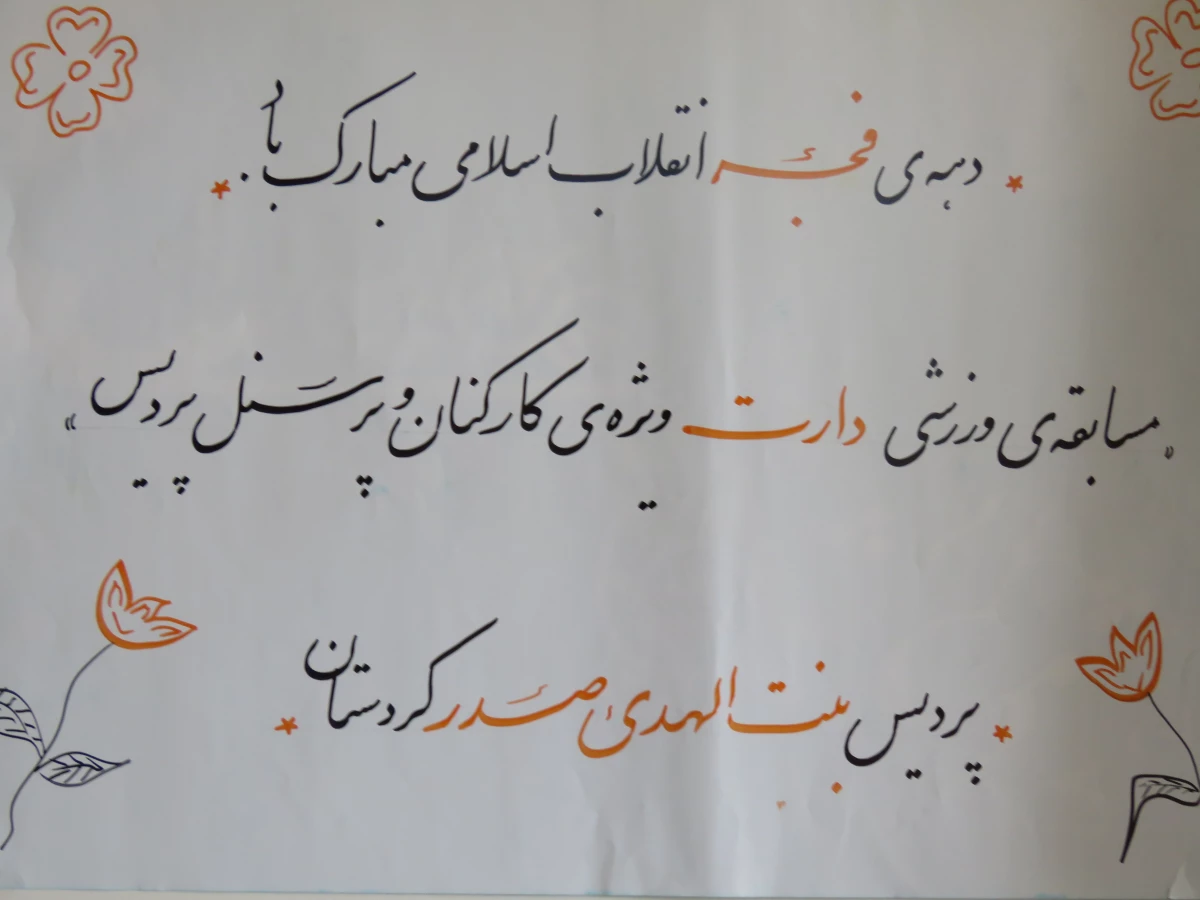 * دهه‌ی فجر انقلاب اسلامی مبارک باد. *
"مسابقه‌ی ورزشی دارت ویژه‌ی کارکنان و پرسنل پردیس"
* پردیس بنت الهدی صدر کردستان *